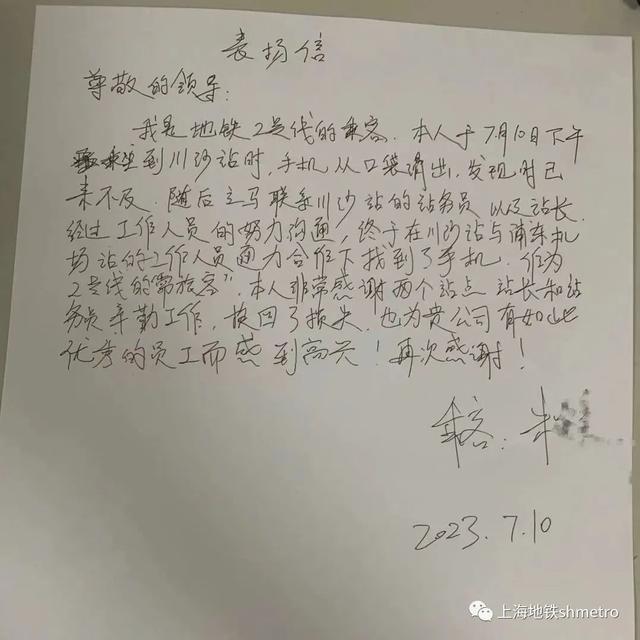 表扬信
尊敬的领导:
我是地铁2号线的乘客.本人于7月10日下午
乘坐到川沙站时,手机从口袋滑出,发现时已
来不及.随后立马联系川沙站的站务员以及站长.
经过工作人员的努力沟通,终于在川沙站与浦东机
场站的工作人员通力合作下找到了手机.作为
2号线的“常旅客”,本人非常感谢两个站点站长和站
务员辛勤工作,挽回了损失.也为贵公司有如此
优秀的员工而感到高兴!再次感谢!
乘客:朱
2023.7.10
上海地铁shmetro